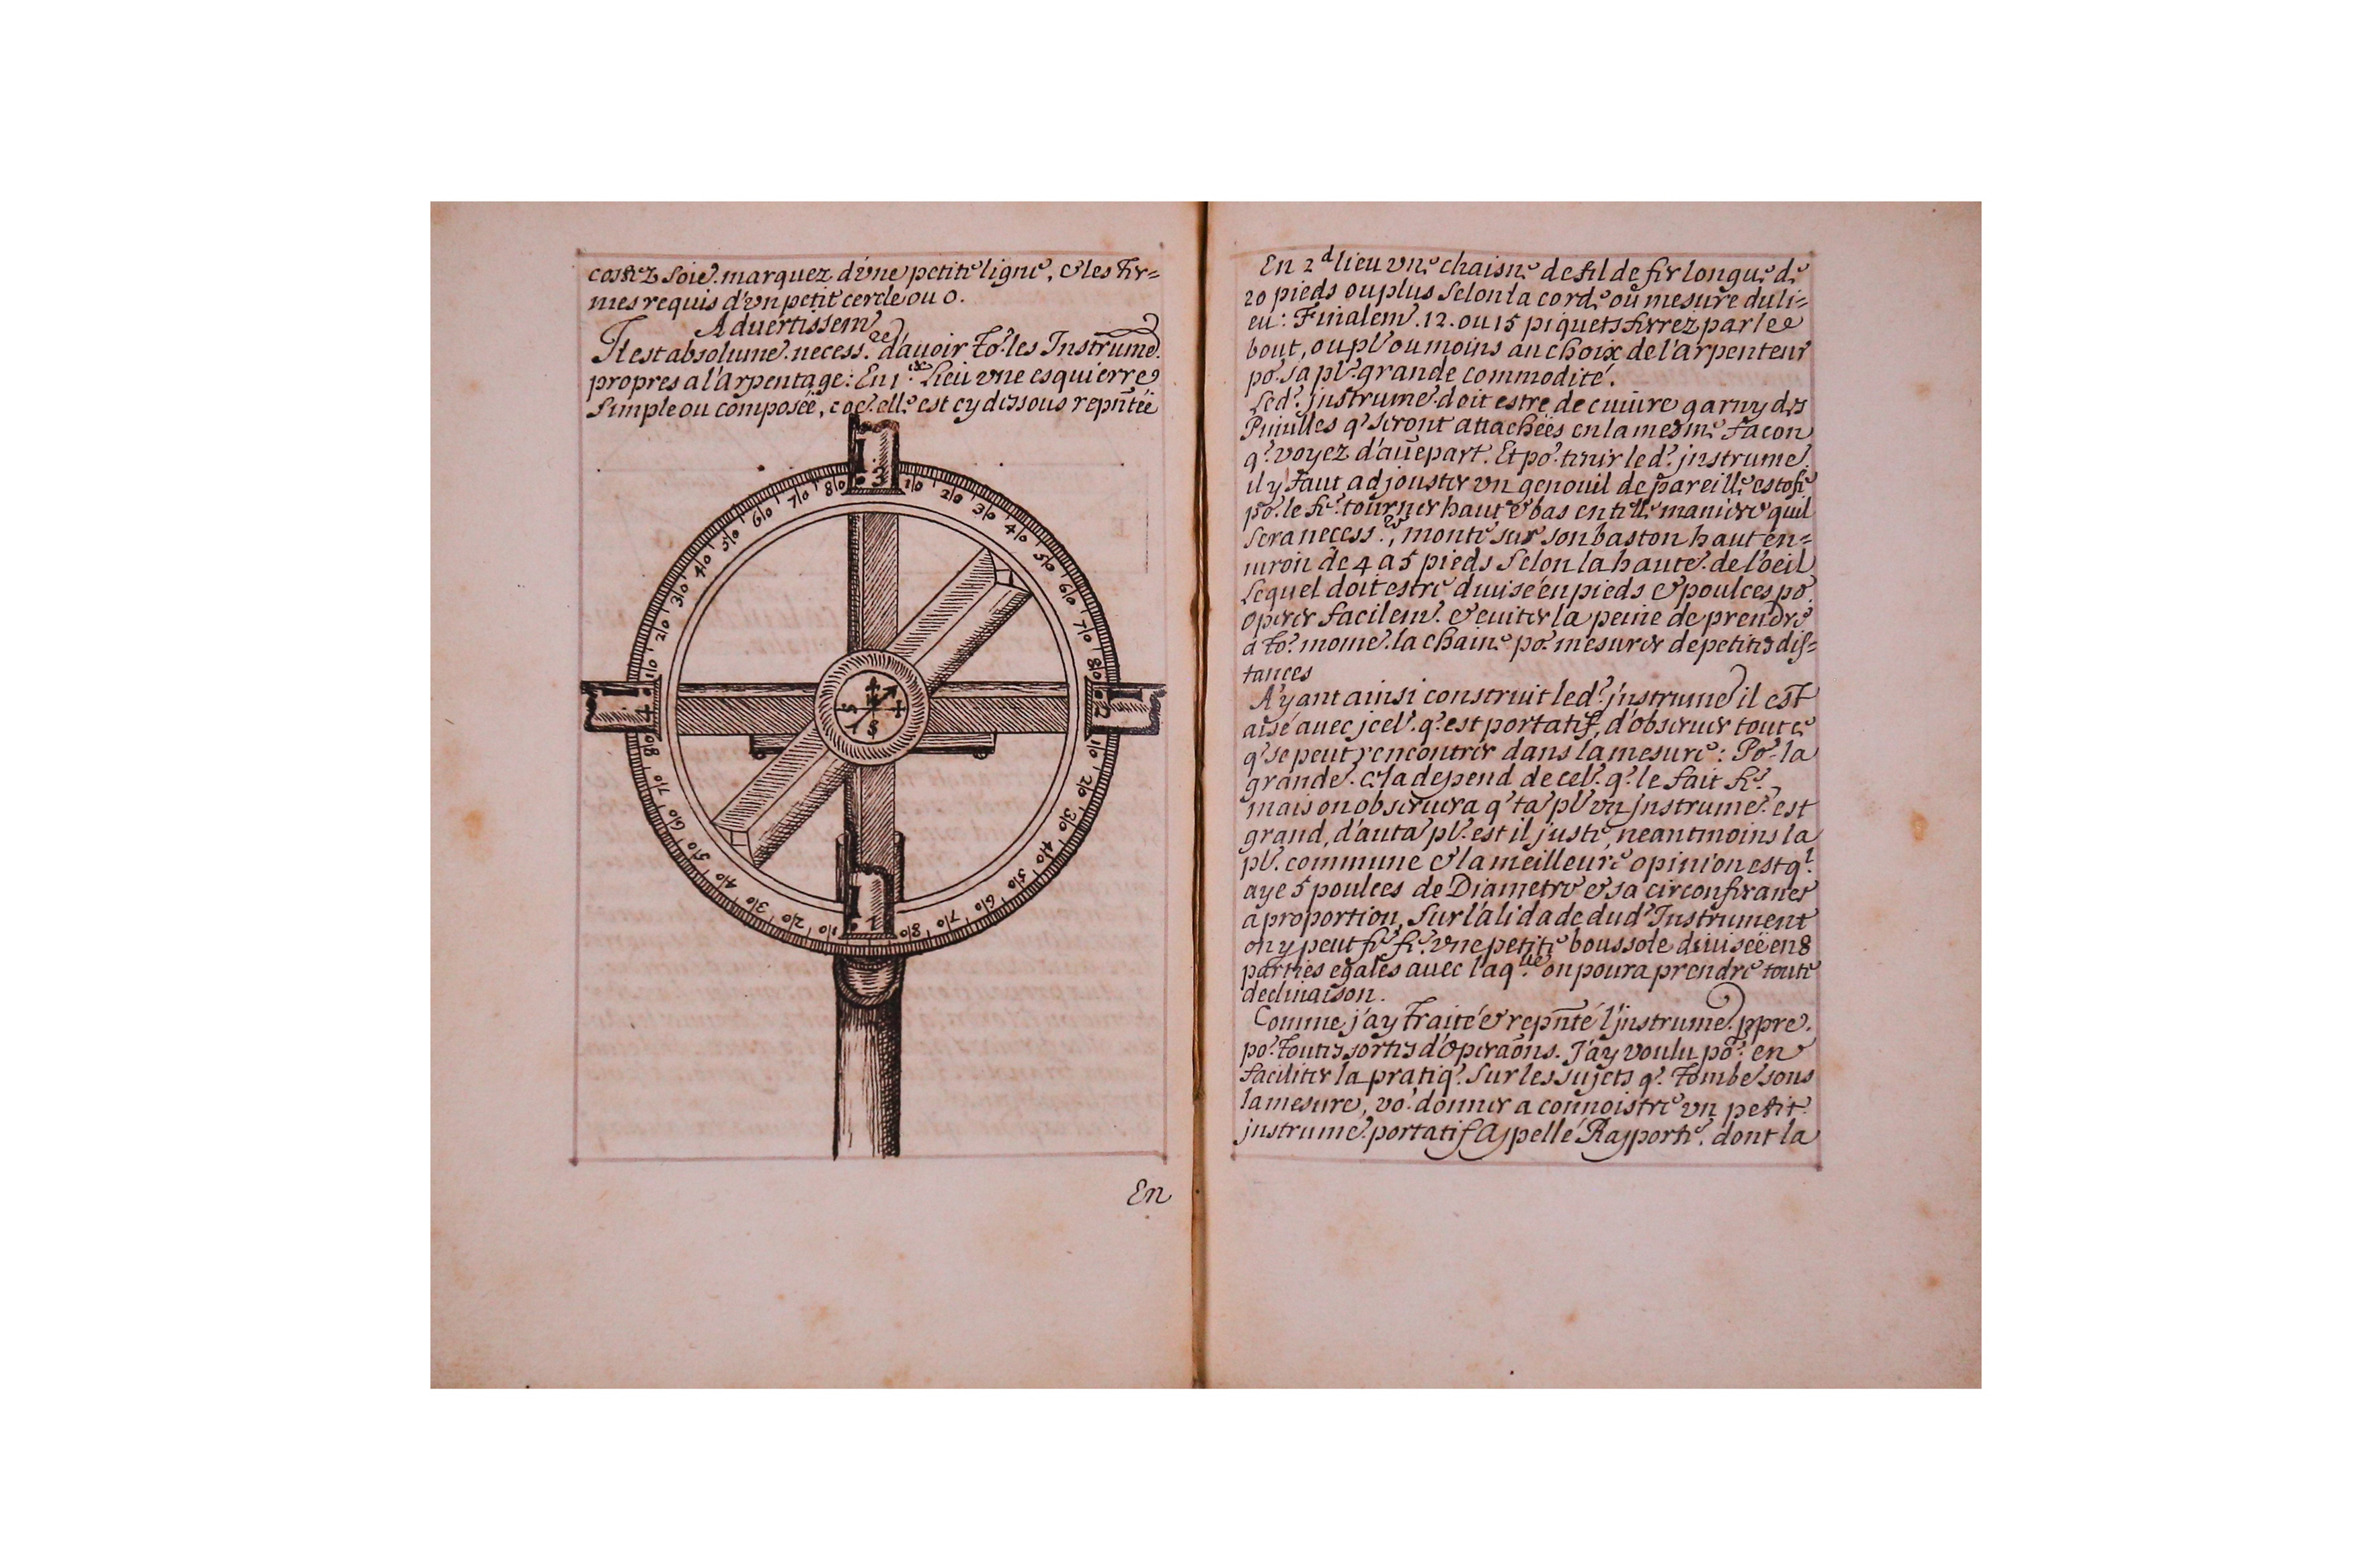 costez soie. marquez d'vne petite ligne, & les ter=
mes requis d'vn petit cercle ou o.
Advertissem
Il est absolume. necess.re d'auoir to. les Instrume.
propres a l'Arpentage: En 1.er Lieu vne esquierre
simple ou composée, coe. elle est cy dessous repñtée
3
10 20 30 40 50 60 70 80
2
10 20 30 40 50 60 70 80
1
10 20 30 40 50 60 70 80
4
10 20 30 40 50 60 70 80
S
En
En 2d lieu vne chaisne de fil de fer longue de
20 pieds ou plus selon la corde ou mesure du li=
eu: Finalem. 12. ou 15 piquets ferrez par le
bout, ou pl' ou moins au choix de l'arpenteur
po. sa pl' grande commodité.
Led. jnstrume doit estre de cuiure garny des
Pinulles q' seront attachées en la mesme facon
q. voyez d'autepart. Et po. tenir led. jnstrume.
il y faut adjouster vn genouil de pareille estofe
po. le fe. tourner haut & bas en telle maniere quil
sera necess.re, monté sur son baston haut en=
uiron de 4 a 5 pieds selon la haute. de l'oeil
Lequel doit estre diuisé en pieds & poulces po.
operer facilem. & euiter la peine de prendre
a to. mome. la chaine po. mesurer de petites dis=
tances
Ayant ainsi construit led. jnstrume il est
aisé auec jcel. q. est portatif, d'obseruer toute
q' se peut rencontrer dans la mesure: Po. la
grande. cela depend de cel. q. le fait fe.,
mais on obseruera q' ta pl' vn jnstrume. est
grand, d'auta pl'. est il juste, neantmoins la
pl'. commune & la meilleure opinion est q.l
aye 5 poulces de Diametre & sa circonferance
a proportion, Sur l'alidade dud. Instrument
on y peut fe. fe. vne petite boussole diuisée en 8
parties egales auec laq.lle on poura prendre toute
declinaison.
Comme j'ay traité & repñté l'jnstrume. ppre.
po. toutes sortes d'Operaõns. J'ay voulu po. en
faciliter la pratiq. Sur les sujets q. tombe sous
la mesure, vo. donner a connoistre vn petit
jnstrume. portatif Appellé Rapporte. dont la